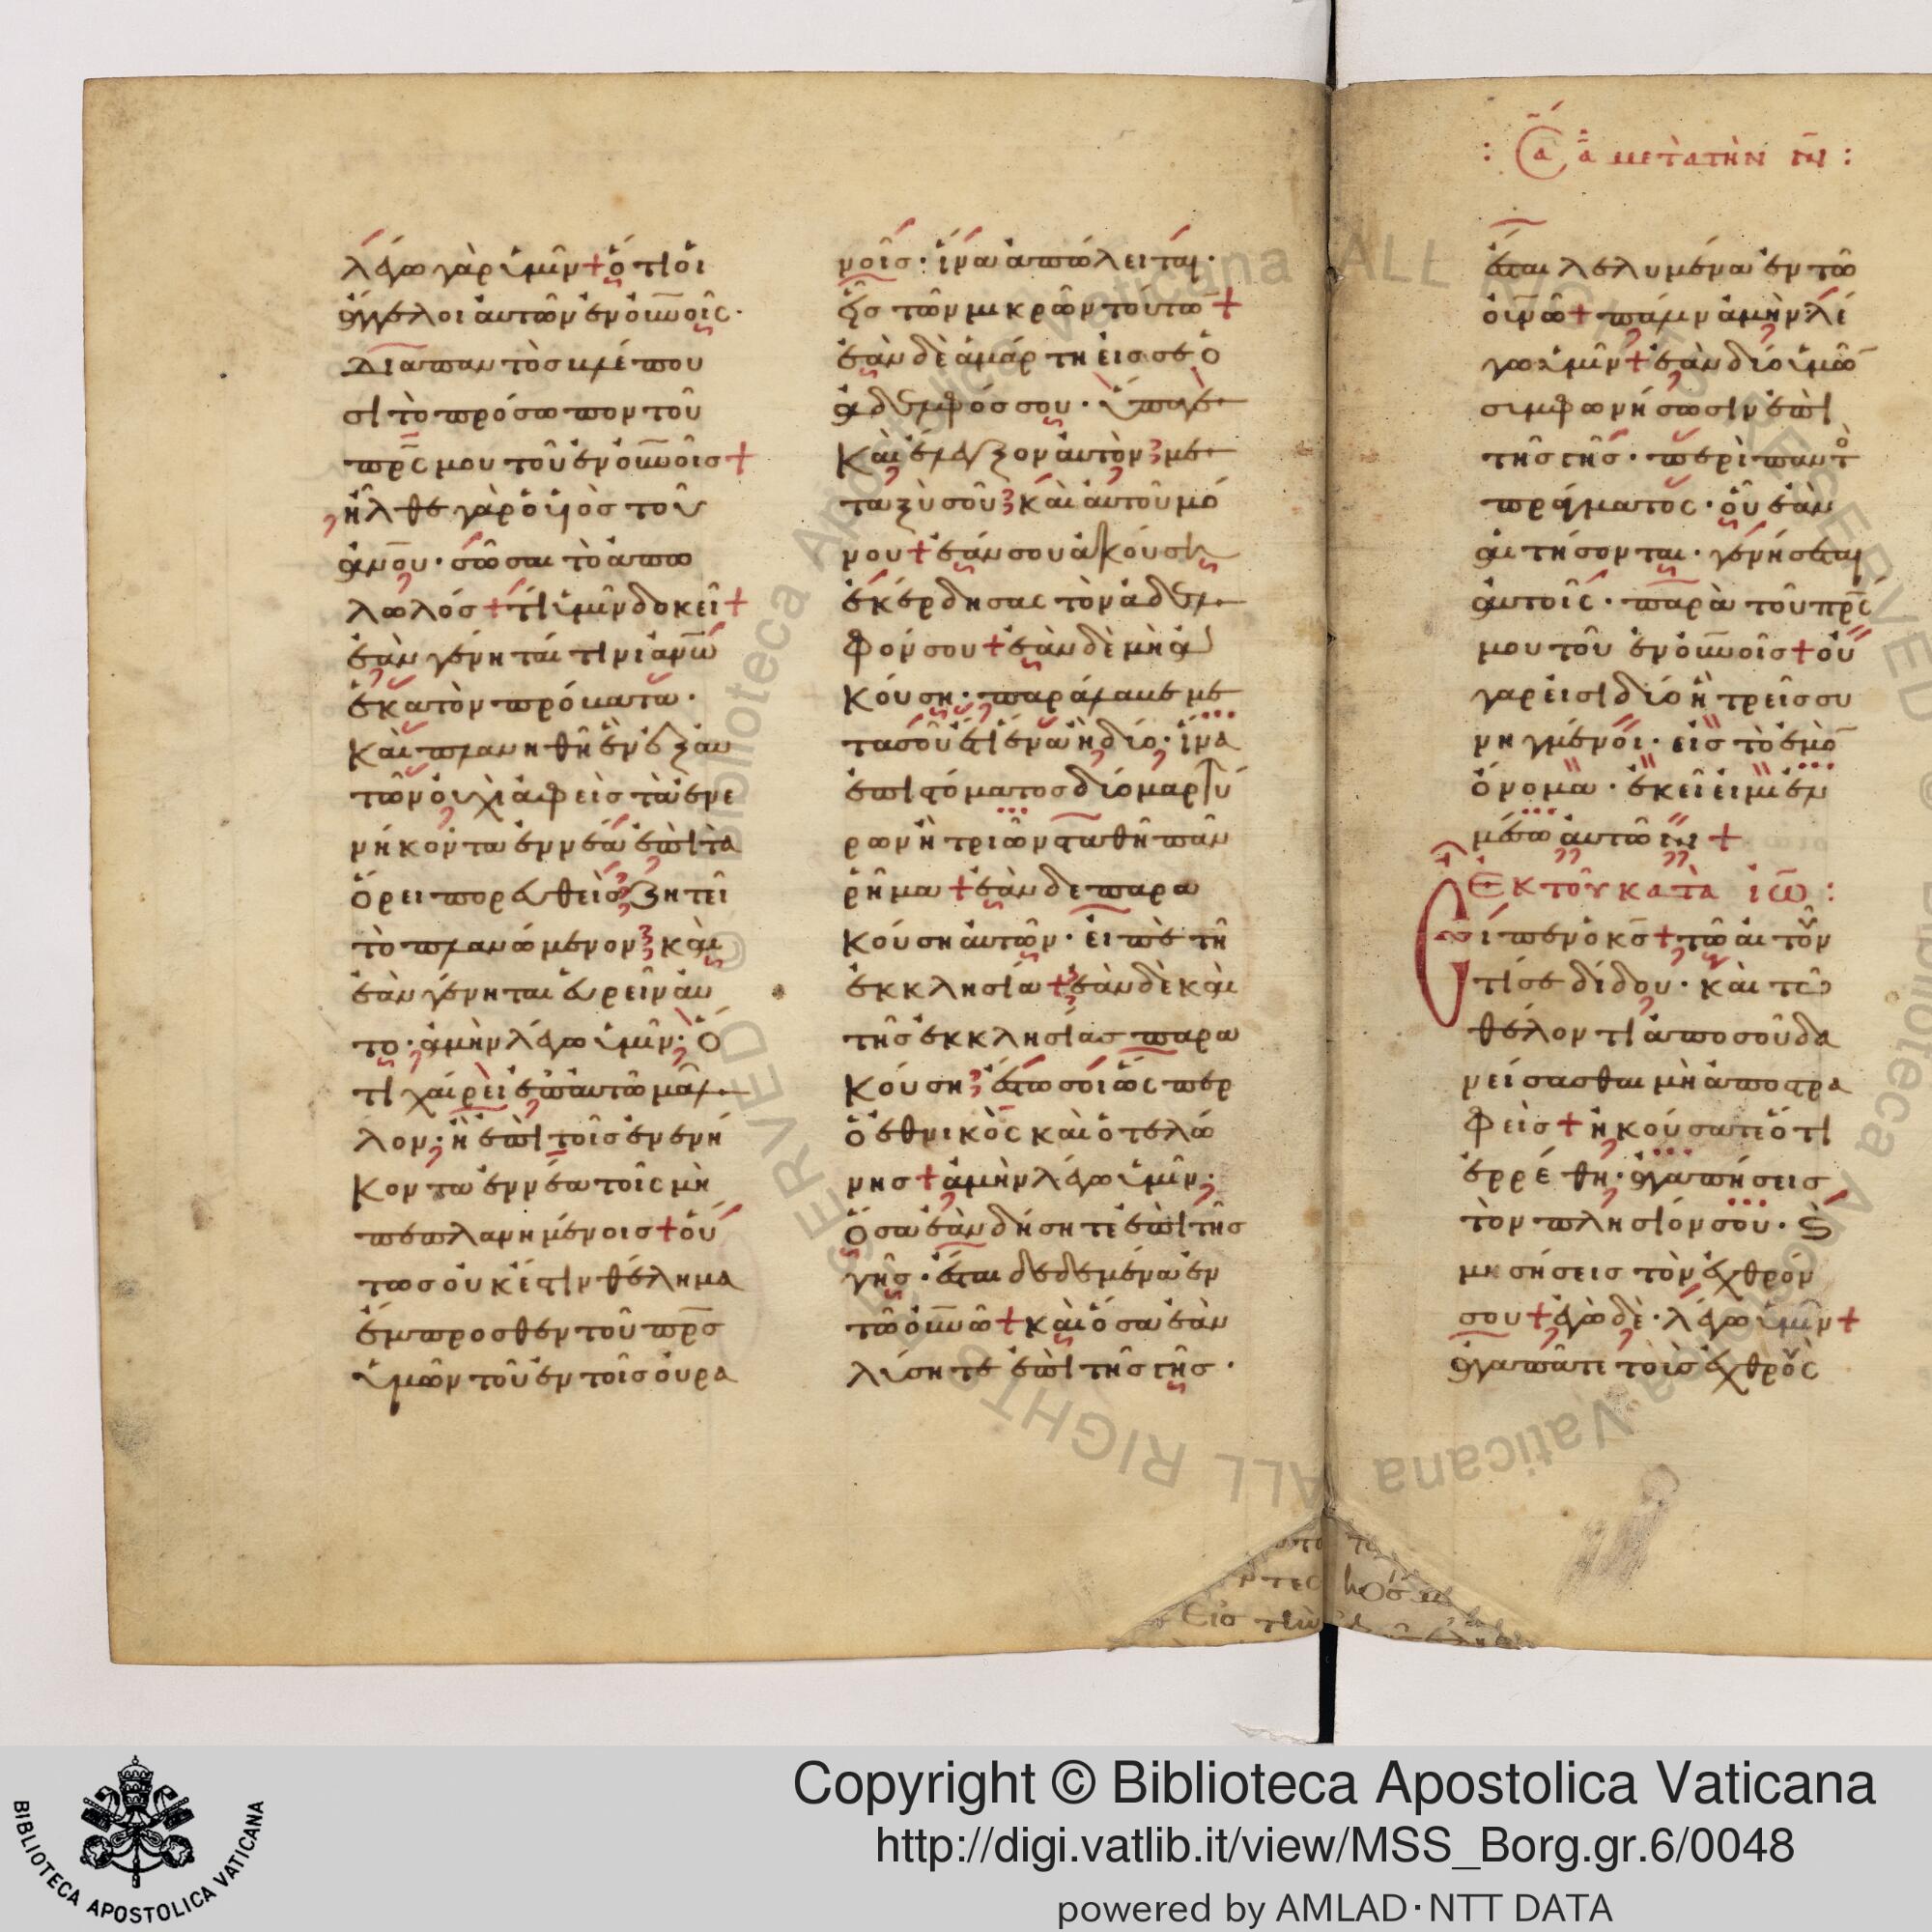 λέγω γὰρ ὑμῖν + ὅτι ὁι
ἄγγελοι ἀυτῶν ἐν ὀυ̅νοῖς·
διαπαντὸς βλέπου
σι τὸ πρόσωπον τοῦ
πρ̅ς μου τοῦ ἐν ὀυ̅νοῖς +
ἦλθε γὰρ ὁ υἱὸς τοῦ
ἀν̅ου· σῶσαι τὸ ἀπο
λωλός + τί ὑμῖν δοκεῖ +
ἐὰν γένηταί τινι ἀν̅ω
ἑκατὸν πρόβατα·
καὶ πλανηθῆ ἓν ἐξ ἀυ
τῶν ὀυχὶ ἀφεὶς τὰ ἐνε
νήκοντα ἐννέα ἐπὶ τὰ
ὄρει πορευθεὶς ζητεῖ
τὸ πλανόμενον καὶ
ἐὰν γένηται ἑυρεῖν ἀυ
το· ἀμὴν λέγω ὑμῖν· ὅ
τι χαίρει ἐπ ἀυτῶ μᾶλ
λον· ἢ ἐπὶ τοῖς ἐνενή
κοντα ἐννέα τοῖς μὴ
πεπλανημένοις + ὁύ
τως ὀυκ ἔστιν θέλημα
ἔμπροσθεν τοῦ πρ̅ς
ὑμῶν τοῦ ἐν τοῖς ὀυρα
νοῖς· ἵνα ἀπόλειται·
εἷς τῶν μικρῶν τούτω̅ +
ἐὰν δὲ ἁμάρτη ἐις σε ὁ
ἀδελφός σου· ὕπαγε
καὶ ἔλεγξον ἀυτὸν με
ταξὺ σοῦ καὶ ἀυτοῦ μό
νου + ἐάν σου ἀκούση
ἐκέρδησας τὸν ἀδελ
φόν σου + ἐὰν δὲ μὴ ἀ
κούση· παράλαβε με
τα σοῦ ἔτι ἕνα ἢ δύο· ἵνα
ἐπὶ στόματος δύο μαρτύ
ρων ἢ τριῶν σταθῆ πᾶν
ῥῆμα + ἐὰν δε παρα
κούση ἀυτῶν· ἐιπὲ τῆ
ἐκκλησία + ἐὰν δὲ καὶ
τῆς ἐκκλησίας παρα
κούση ἔστω σοι ὡς περ
ὁ ἐθνικὸς καὶ ὁ τελώ
νης + ἀμὴν λέγω ὑμῖν·
ὅσα ἐὰν δήσητε ἐπὶ τῆς
γῆς· ἔσται δεδεμένα ἐν
τῶ ὀυ̅νῶ + καὶ ὅσα ἐὰν
λύσητε ἐπὶ τῆς γῆς·
: Σα α μετὰ τὴν Ν :
ἔσται λελυμένα ἐν τῶ
ὀυ̅νῶ + πάλιν ἀμὴν λέ
γω ὑμῖν + ἐὰν δύο ὑμῶ̅
συμφωνήσωσιν ἐπὶ
τῆς γῆς· περὶ παντὸ
πράγματος· ὁῦ ἐὰν
ἀιτήσονται· γενήσεται
ἀυτοῖς· παρὰ τοῦ πρ̅ς
μου τοῦ ἐν ὀυ̅νοῖς + ὁύ
γαρ ἐισι δύο ἢ τρεῖς συ
νηγμένοι· ἐις τὸ ἐμὸ̅
ὄνομα· ἐκεῖ ἐιμι ἐν
μέσω ἀυτῶν +
Ἐκ τοῦ κατὰ ἰω̅ :
Εἶπεν ὁ κς̅ + τῶ ἀιτοῦν
τί σε δίδου· καὶ τῶ
θέλοντι ἀπο σοῦ δα
νείσασθαι μὴ ἀποστρα
φεὶς + ἠκούσατε ὅτι
ἐρρέθη· ἀγαπήσεις
τὸν πλησίον σου· ϗ
μισήσεις τὸν ἐχθρόν
σου + ἐγὼ δὲ· λέγω ὑμῖν +
ἀγαπᾶτε τοὺς ἐχθροὺς
BIBLIOTECA APOSTOLICA VATICANA
Copyright © Biblioteca Apostolica Vaticana
http://digi.vatlib.it/view/MSS_Borg.gr.6/0048
powered by AMLAD·NTT DATA